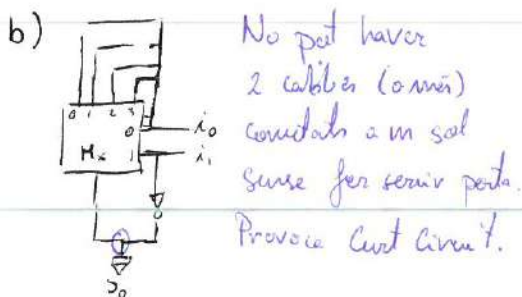 b)
0 1 2 3
0 i0
Mx 1 i1
0
S0
No pot haver
2 cables (o més)
conectats a un sol
sense fer servir porta.
Provoca Curt Circuit.